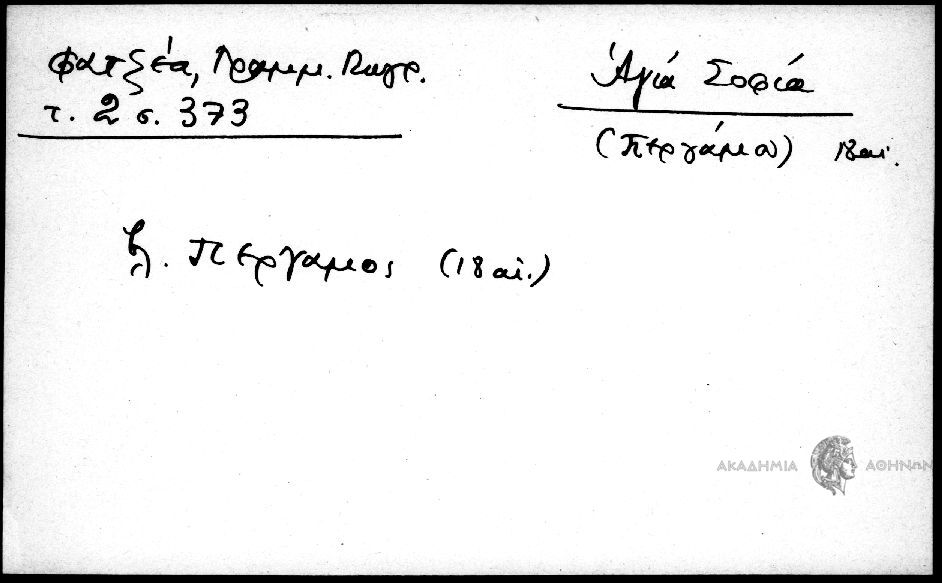 Φατζέα, Γραμμ. Παγρ.
τ. 2 σ. 373
Ἁγιά Σοφιά
(Περγάμου) 18 αἰ.
βλ. Πέργαμος (18 αἰ.)
ΑΚΑΔΗΜΙΑ ΑΘΗΝΩΝ